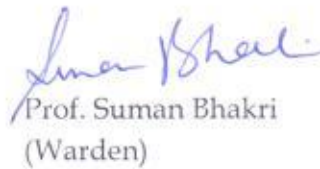 Suman Bhakri
Prof. Suman Bhakri
(Warden)